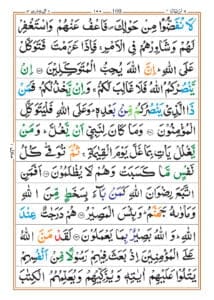 لَا نْفَضُّوْا مِنْ حَوْلِكَ ۪ فَاعْفُ عَنْهُمْ وَاسْتَغْفِرْ
لَهُمْ وَشَاوِرْهُمْ فِي الْاَمْرِ ۚ فَاِذَا عَزَمْتَ فَتَوَكَّلْ
عَلَى اللّٰهِ ؕ اِنَّ اللّٰهَ يُحِبُّ الْمُتَوَكِّلِيْنَ ۝ اِنْ
يَّنْصُرْكُمُ اللّٰهُ فَلَا غَالِبَ لَكُمْ ۚ وَاِنْ يَّخْذُلْكُمْ فَمَنْ
ذَا الَّذِيْ يَنْصُرُكُمْ مِّنْۢ بَعْدِهٖ ؕ وَعَلَى اللّٰهِ فَلْيَتَوَكَّلِ
الْمُؤْمِنُوْنَ ۝ وَمَا كَانَ لِنَبِيٍّ اَنْ يَّغُلَّ ؕ وَمَنْ
يَّغْلُلْ يَاْتِ بِمَا غَلَّ يَوْمَ الْقِيٰمَةِ ۚ ثُمَّ تُوَفّٰى كُلُّ
نَفْسٍ مَّا كَسَبَتْ وَهُمْ لَا يُظْلَمُوْنَ ۝ اَفَمَنِ
اتَّبَعَ رِضْوَانَ اللّٰهِ كَمَنْۢ بَآءَ بِسَخَطٍ مِّنَ اللّٰهِ
وَمَاْوٰىهُ جَهَنَّمُ ؕ وَبِئْسَ الْمَصِيْرُ ۝ هُمْ دَرَجٰتٌ عِنْدَ
اللّٰهِ ؕ وَاللّٰهُ بَصِيْرٌۢ بِمَا يَعْمَلُوْنَ ۝ لَقَدْ مَنَّ اللّٰهُ
عَلَى الْمُؤْمِنِيْنَ اِذْ بَعَثَ فِيْهِمْ رَسُوْلًا مِّنْ اَنْفُسِهِمْ
يَتْلُوْا عَلَيْهِمْ اٰيٰتِهٖ وَيُزَكِّيْهِمْ وَيُعَلِّمُهُمُ الْكِتٰبَ